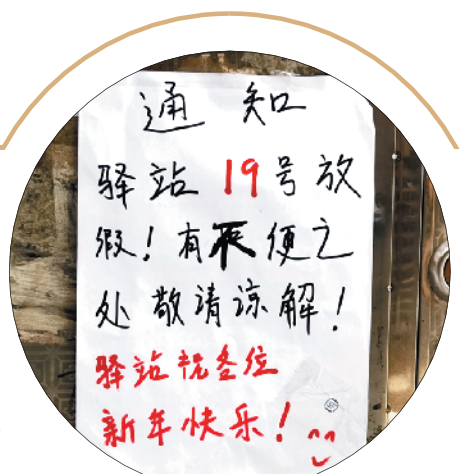 通知
驿站19号放
假！有不便之
处敬请谅解！
驿站祝各位
新年快乐！